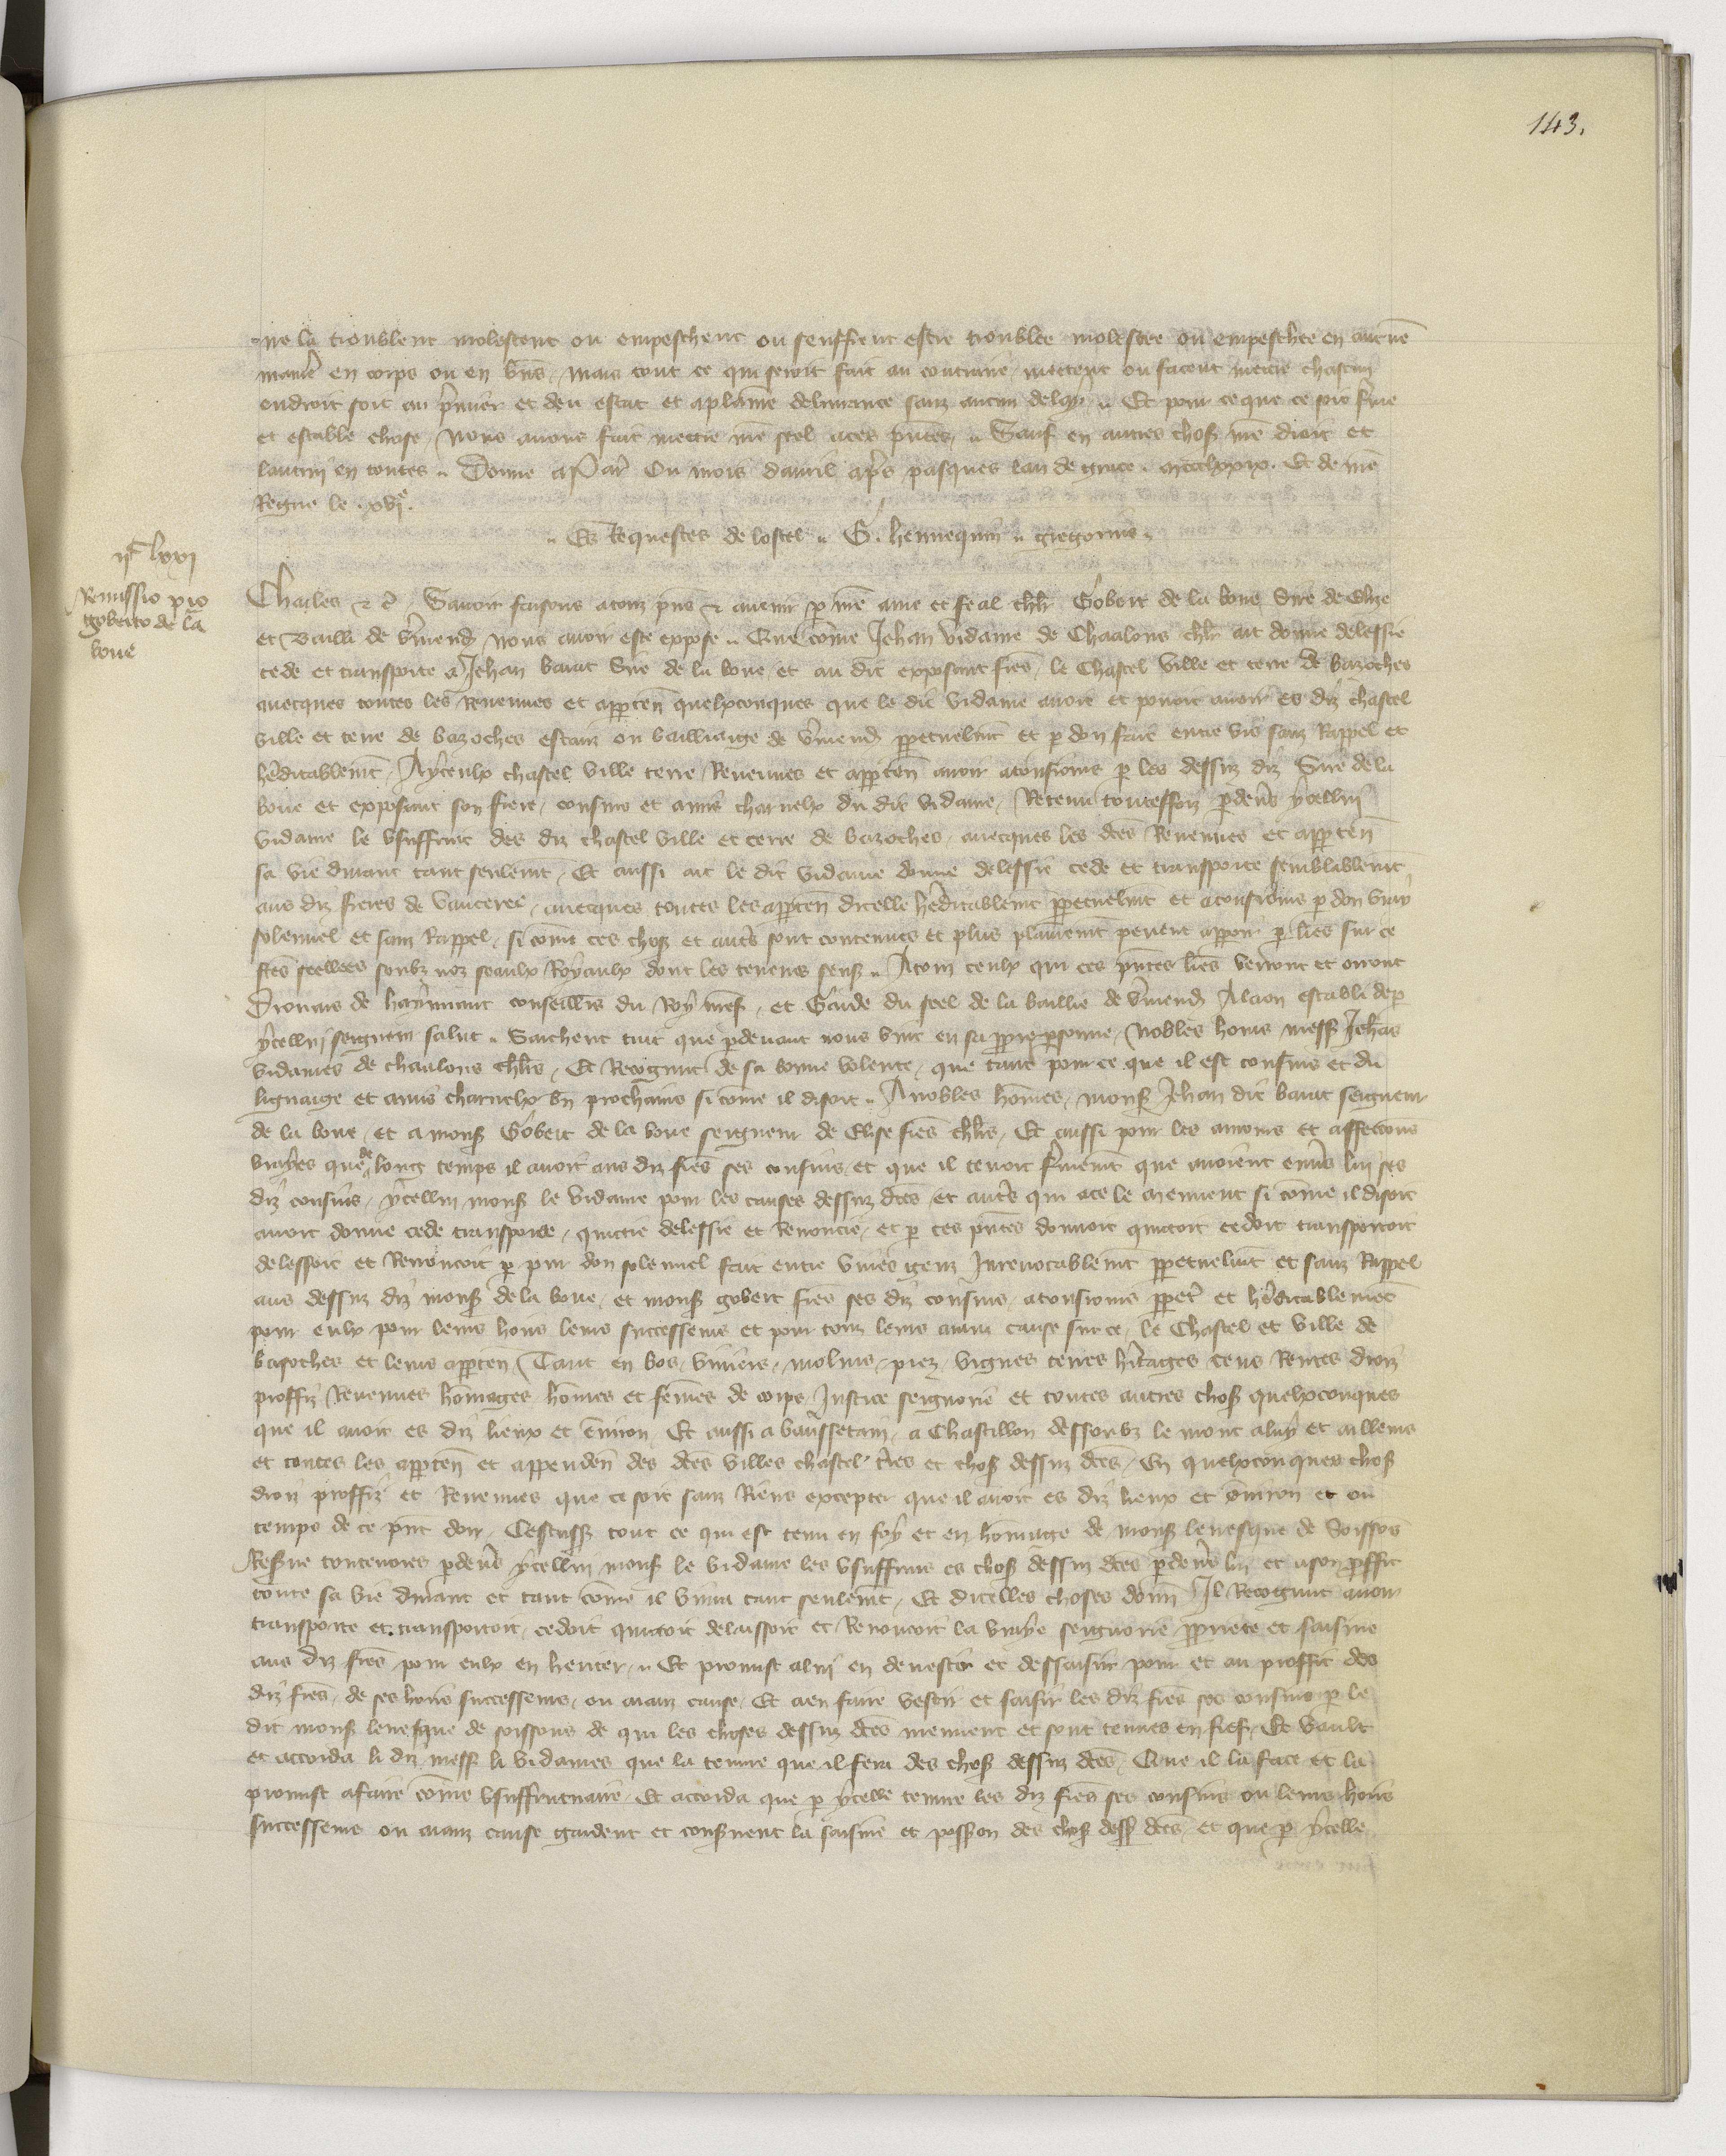 143.
ne la troublent molestent ou empeschent ou seuffrent estre troublee molestee ou empeschee en aucune
maniere en corps ou en biens, mais tout ce qui seroit fait au contraire mettent ou facent mettre chascun
endroit soit au premier et deu estat et a plaine delivrance sanz aucun delay. Et pour ce que ce soit ferme
et estable chose, Nous avons fait mettre nostre seel a ces presentes. Sauf en autres choses nostre droit et
lautrui en toutes. Donne a Paris Ou mois davril apres pasques lan de grace mccclxxix. Et de nostre
Regne le xvie.
Es Requestes de lostel. G. hennequin. gregorius.
iic lxxi
Remissio pro
goberto de la
bove
Charles etc. Savoir faisons a touz presens et avenir par nostre ame et feal chevalier Gobert de la bove Sire de
et Bailli de vermend nous avoir este expose. Que comme Jehan vidame de Chaalons chevalier ait donne delessie
cede et transporte a Jehan barat Sire de la bove et au dit exposant freres, le Chastel ville et terre de bazoches
avecques toutes les Revenues et apparten quelxconques que le dit vidame avoit et povoit avoir es diz chastel
ville et terre de bazoches estanz ou bailliaige de vermend perpetuelment et par don fait entre vis sanz Rappel et
hereditablement, A yceulx chastel ville terre Revenues et apparten avoir a tousiours par les dessuz diz Sire de la
bove et exposant son frere, cousins et amis charnelx du dit vidame, Retenu toutesfoiz pardevers ycellui
vidame le usuffruit des diz chastel ville et terre de bazoches avecques les dictes Revenues et apparten
sa vie durant tant seulement, Et aussi ait le dit vidame donne delessie cede et transporte semblablement
aus diz freres de vauceree, avecques toutes les apparten dicelle hereditablement perpetuelment et a tousiours par don vray
solennel et sanz Rappel, si comme ces choses et autres sont contenues et plus plainement pevent apparoir par lettres sur ce
faites seellees soubz noz seaulx Royaulx dont les teneurs sensuient. A touz ceulx qui ces presentes lettres verront et orront
de conseillers du Roy nostre sire, et Garde du seel de la baillie de vermend A laon establi de par
ycellui seigneur salut. Sachent tuit que pardevant nous vint en sa propre personne, Nobles homs messire Jehans
vidames de chaalons chevaliers, Et Recognut de sa bonne volente, que tant pour ce que il est cousins et du
lignaige et amis charnelx bien prochains si comme il disoit. A nobles hommes, monseigneur Jehan dit barat seigneur
de la bove, et a monseigneur Gobert de la bove seigneur de Clise freres chevaliers, Et aussi pour les amours et affections
vrayes que de long temps il avoit aus diz freres ses cousins, et que il tenoit fermement que avoient envers lui ses
diz cousins, ycellui monseigneur le vidame pour les causes dessuz dictes et autres qui a ce le mennent si comme il disoit
avoit donne cede transporte, quictie delessie et Renoncie, et par ces presentes donnoit quictoit cedoit transportoit
delessoit et Renoncoit par pur don solennel fait entre vives genz Inrevocablement perpetuelment et sanz Rappel
aus dessuz diz monseigneur de la bove, et monseigneur gobert freres ses diz cousins, a tousiours perpetuel et hereditablement
pour eulx pour leurs hoirs leurs successeurs et pour touz leurs aianz cause sur ce, le Chastel et ville de
basoches et leurs apparten, Tant en bos, viviers, molins, prez, vignes terres heritages cens Rentes droiz
proffiz Revenues hommages hommes et femmes de corps Justice seignorie et toutes autres choses quelxconques
que il avoit es diz lieux et environ, Et aussi a vaussetain, a Chastillon dessoubz le mont et ailleurs
et toutes les apparten et appenden des dictes villes chastel terres et choses dessuz dictes, En quelxconques choses
droiz proffiz et Revenues que ce soit sanz Riens excepter que il avoit es diz lieux et environ et ou
temps de ce present don, Cestassavoir tout ce qui est tenu en foy et en hommage de monseigneur levesque de Soissons
Reserve toutevoies pardevers ycellui monseigneur le vidame les usuffruis es choses dessuz dictes pardevers lui et a son proffit
toute sa vie durant et tant comme il vivra tant seulement, Et dicelles choses donnees Il Recognut avoir
transporte et transportoit, cedoit quictoit delaissoit et Renoncoit la vraye seignorie propriete et saisine
aus diz freres, pour eulx en heriter. Et promist a lui en devestir et dessaisir pour et au proffit des
diz freres, de ses hoirs successeurs, ou aianz cause, Et a en faire vestir et saisir les diz freres ses cousins par le
dit monseigneur levesque de soissons de qui les choses dessuz dictes meuvent et sont tenues en fief, Et vault
et accorda li diz messire li vidames que la tenure que il fera des choses dessuz dictes, Que il la face et la
promist a faire comme usuffructuaire, Et accorda que par ycelle tenure les diz freres ses cousins ou leurs hoirs
successeurs ou aianz cause gardent et conservent la saisine et possession des choses dessus dictes, et que par ycelle